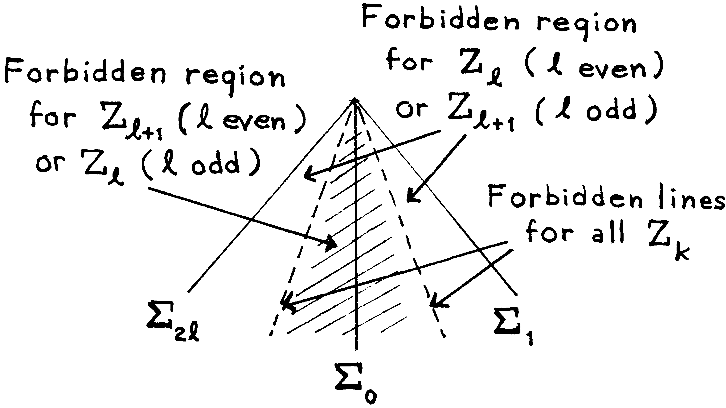 Forbidden region
for Zℓ (ℓ even)
or Zℓ+1 (ℓ odd)
Forbidden region
for Zℓ+1 (ℓ even)
or Zℓ (ℓ odd)
Forbidden lines
for all Zk
Σ2ℓ
Σ0
Σ1